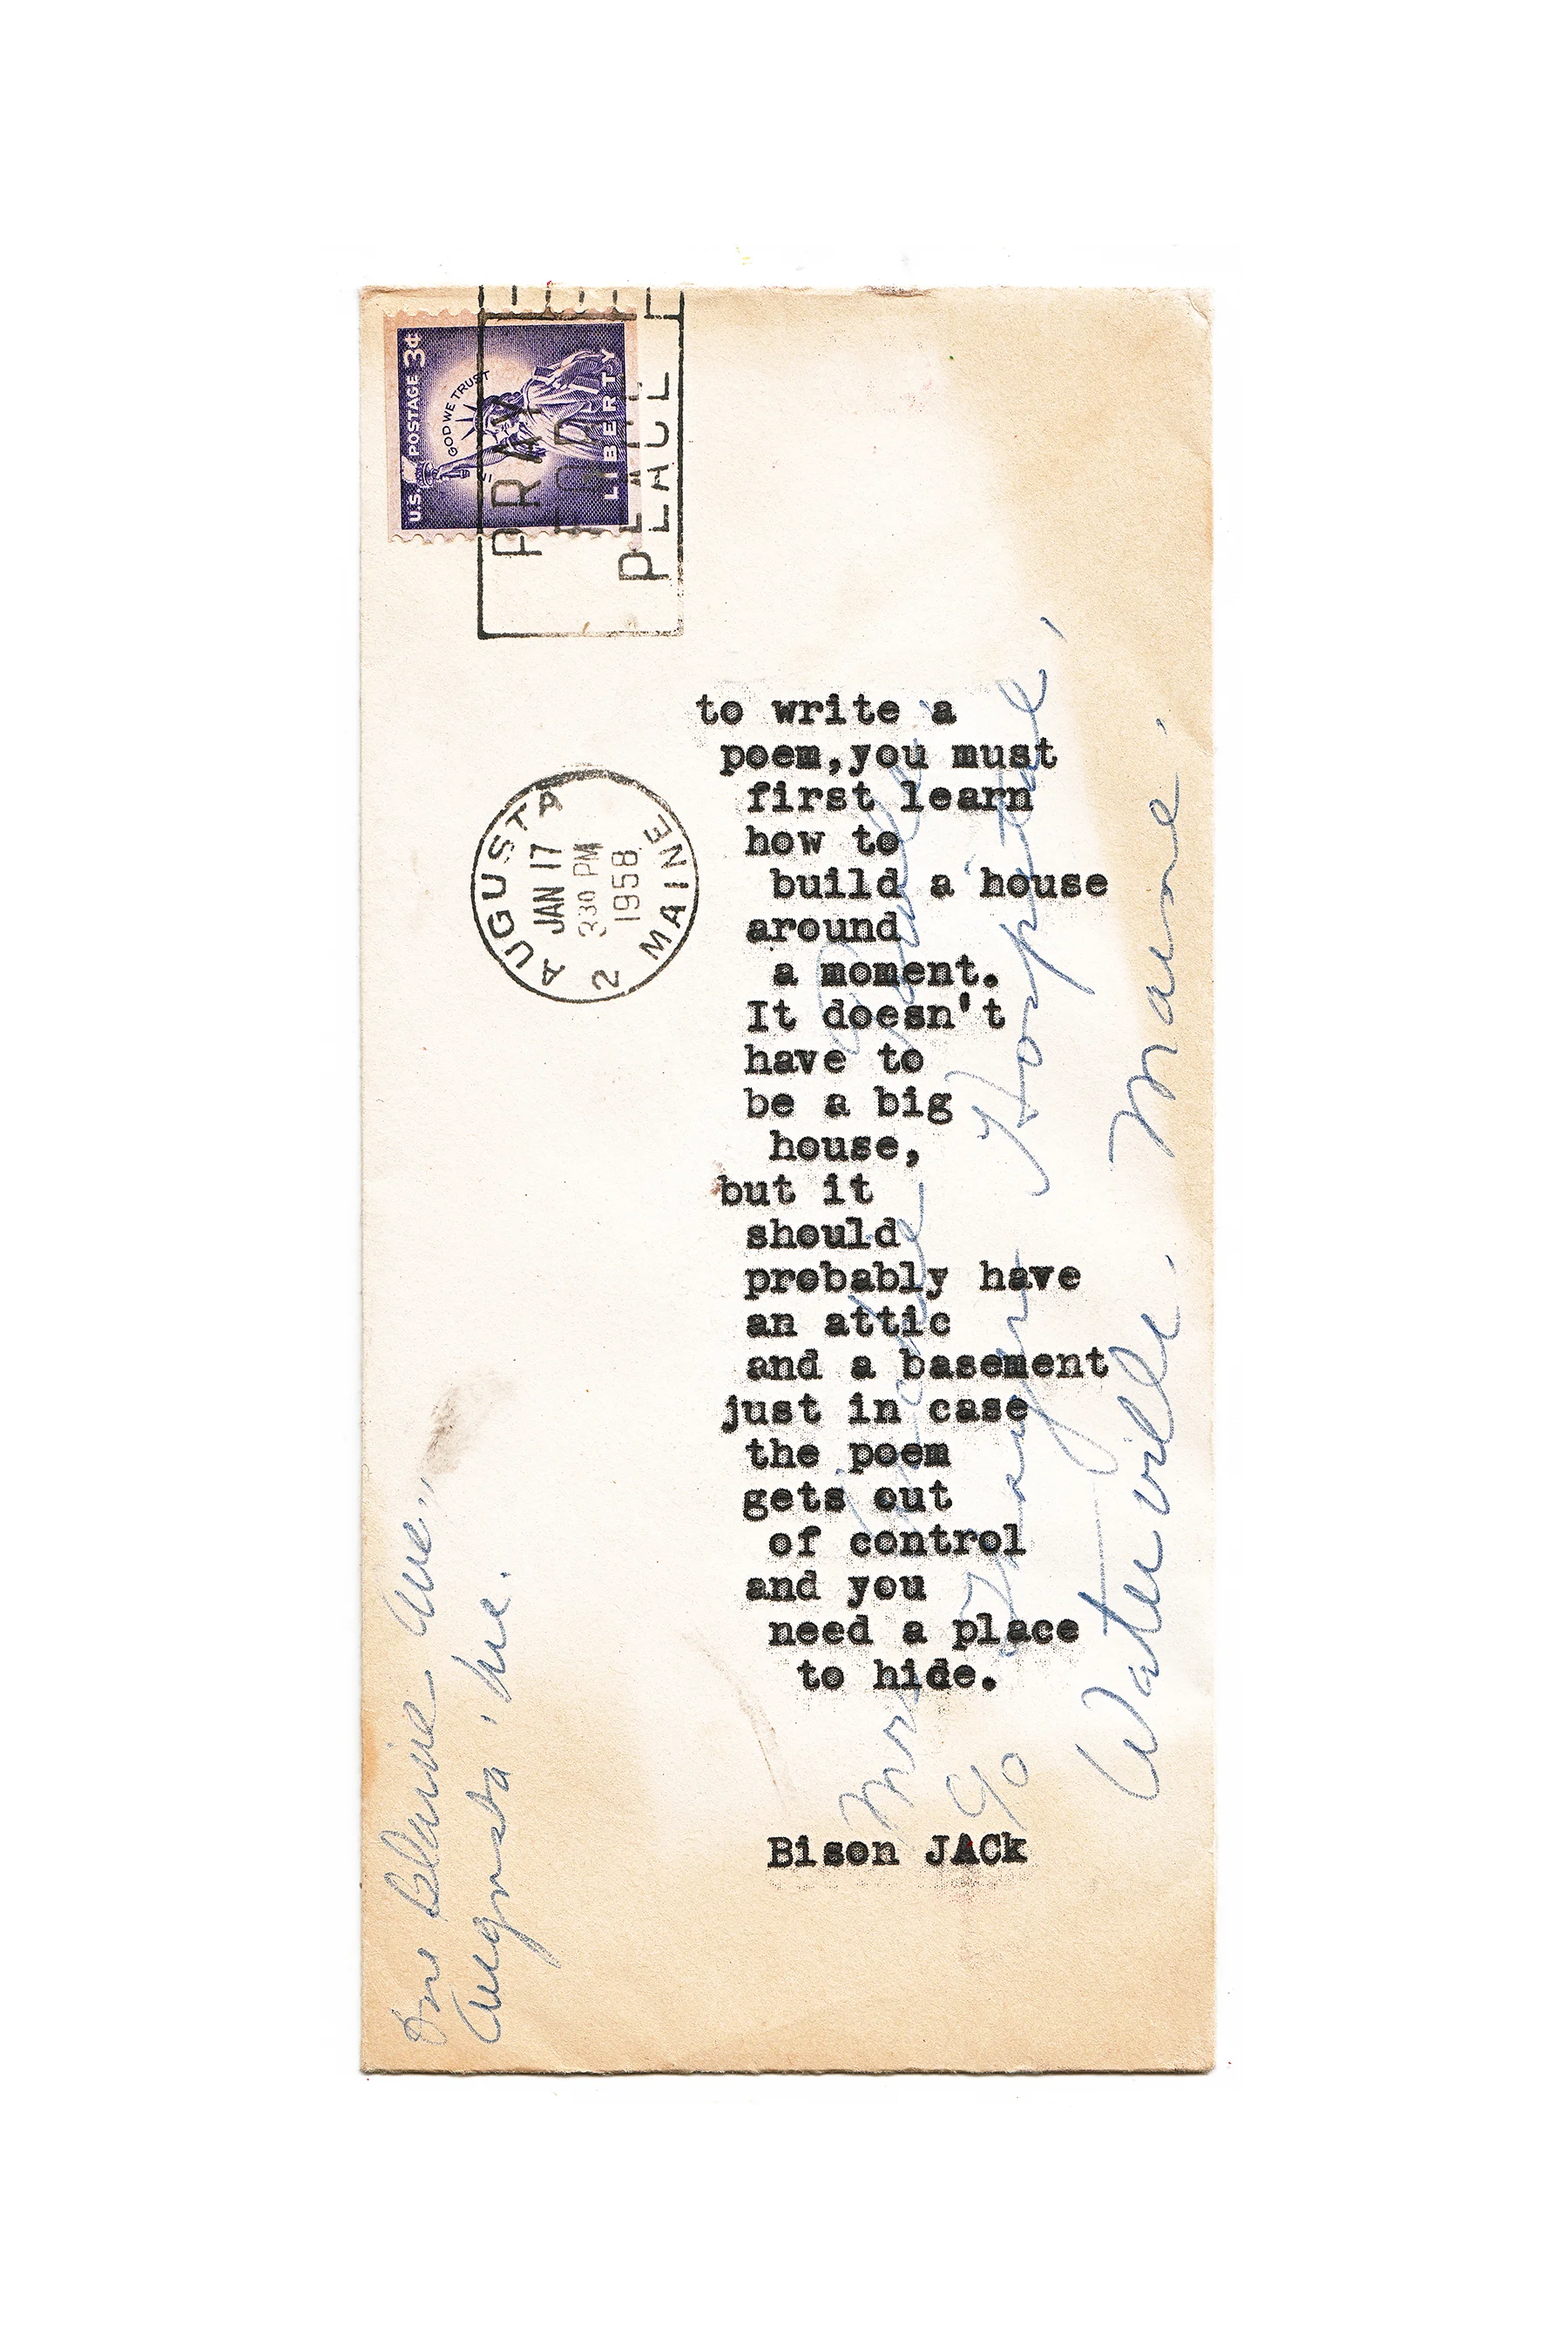 U.S. POSTAGE 3¢
GOD WE TRUST
LIBERTY
PRAY
FOR
PEACE
AUGUSTA
JAN 17
330 PM
1958
2 MAINE
to write a
poem,you must
first learn
how to
build a house
around
a moment.
It doesn't
have to
be a big
house,
but it
should
probably have
an attic
and a basement
just in case
the poem
gets out
of control
and you
need a place
to hide.
Bison JACk
Mrs
c/o Thayer Hospital,
Waterville. Maine.
One Blaine Ave.,
Augusta, Me.